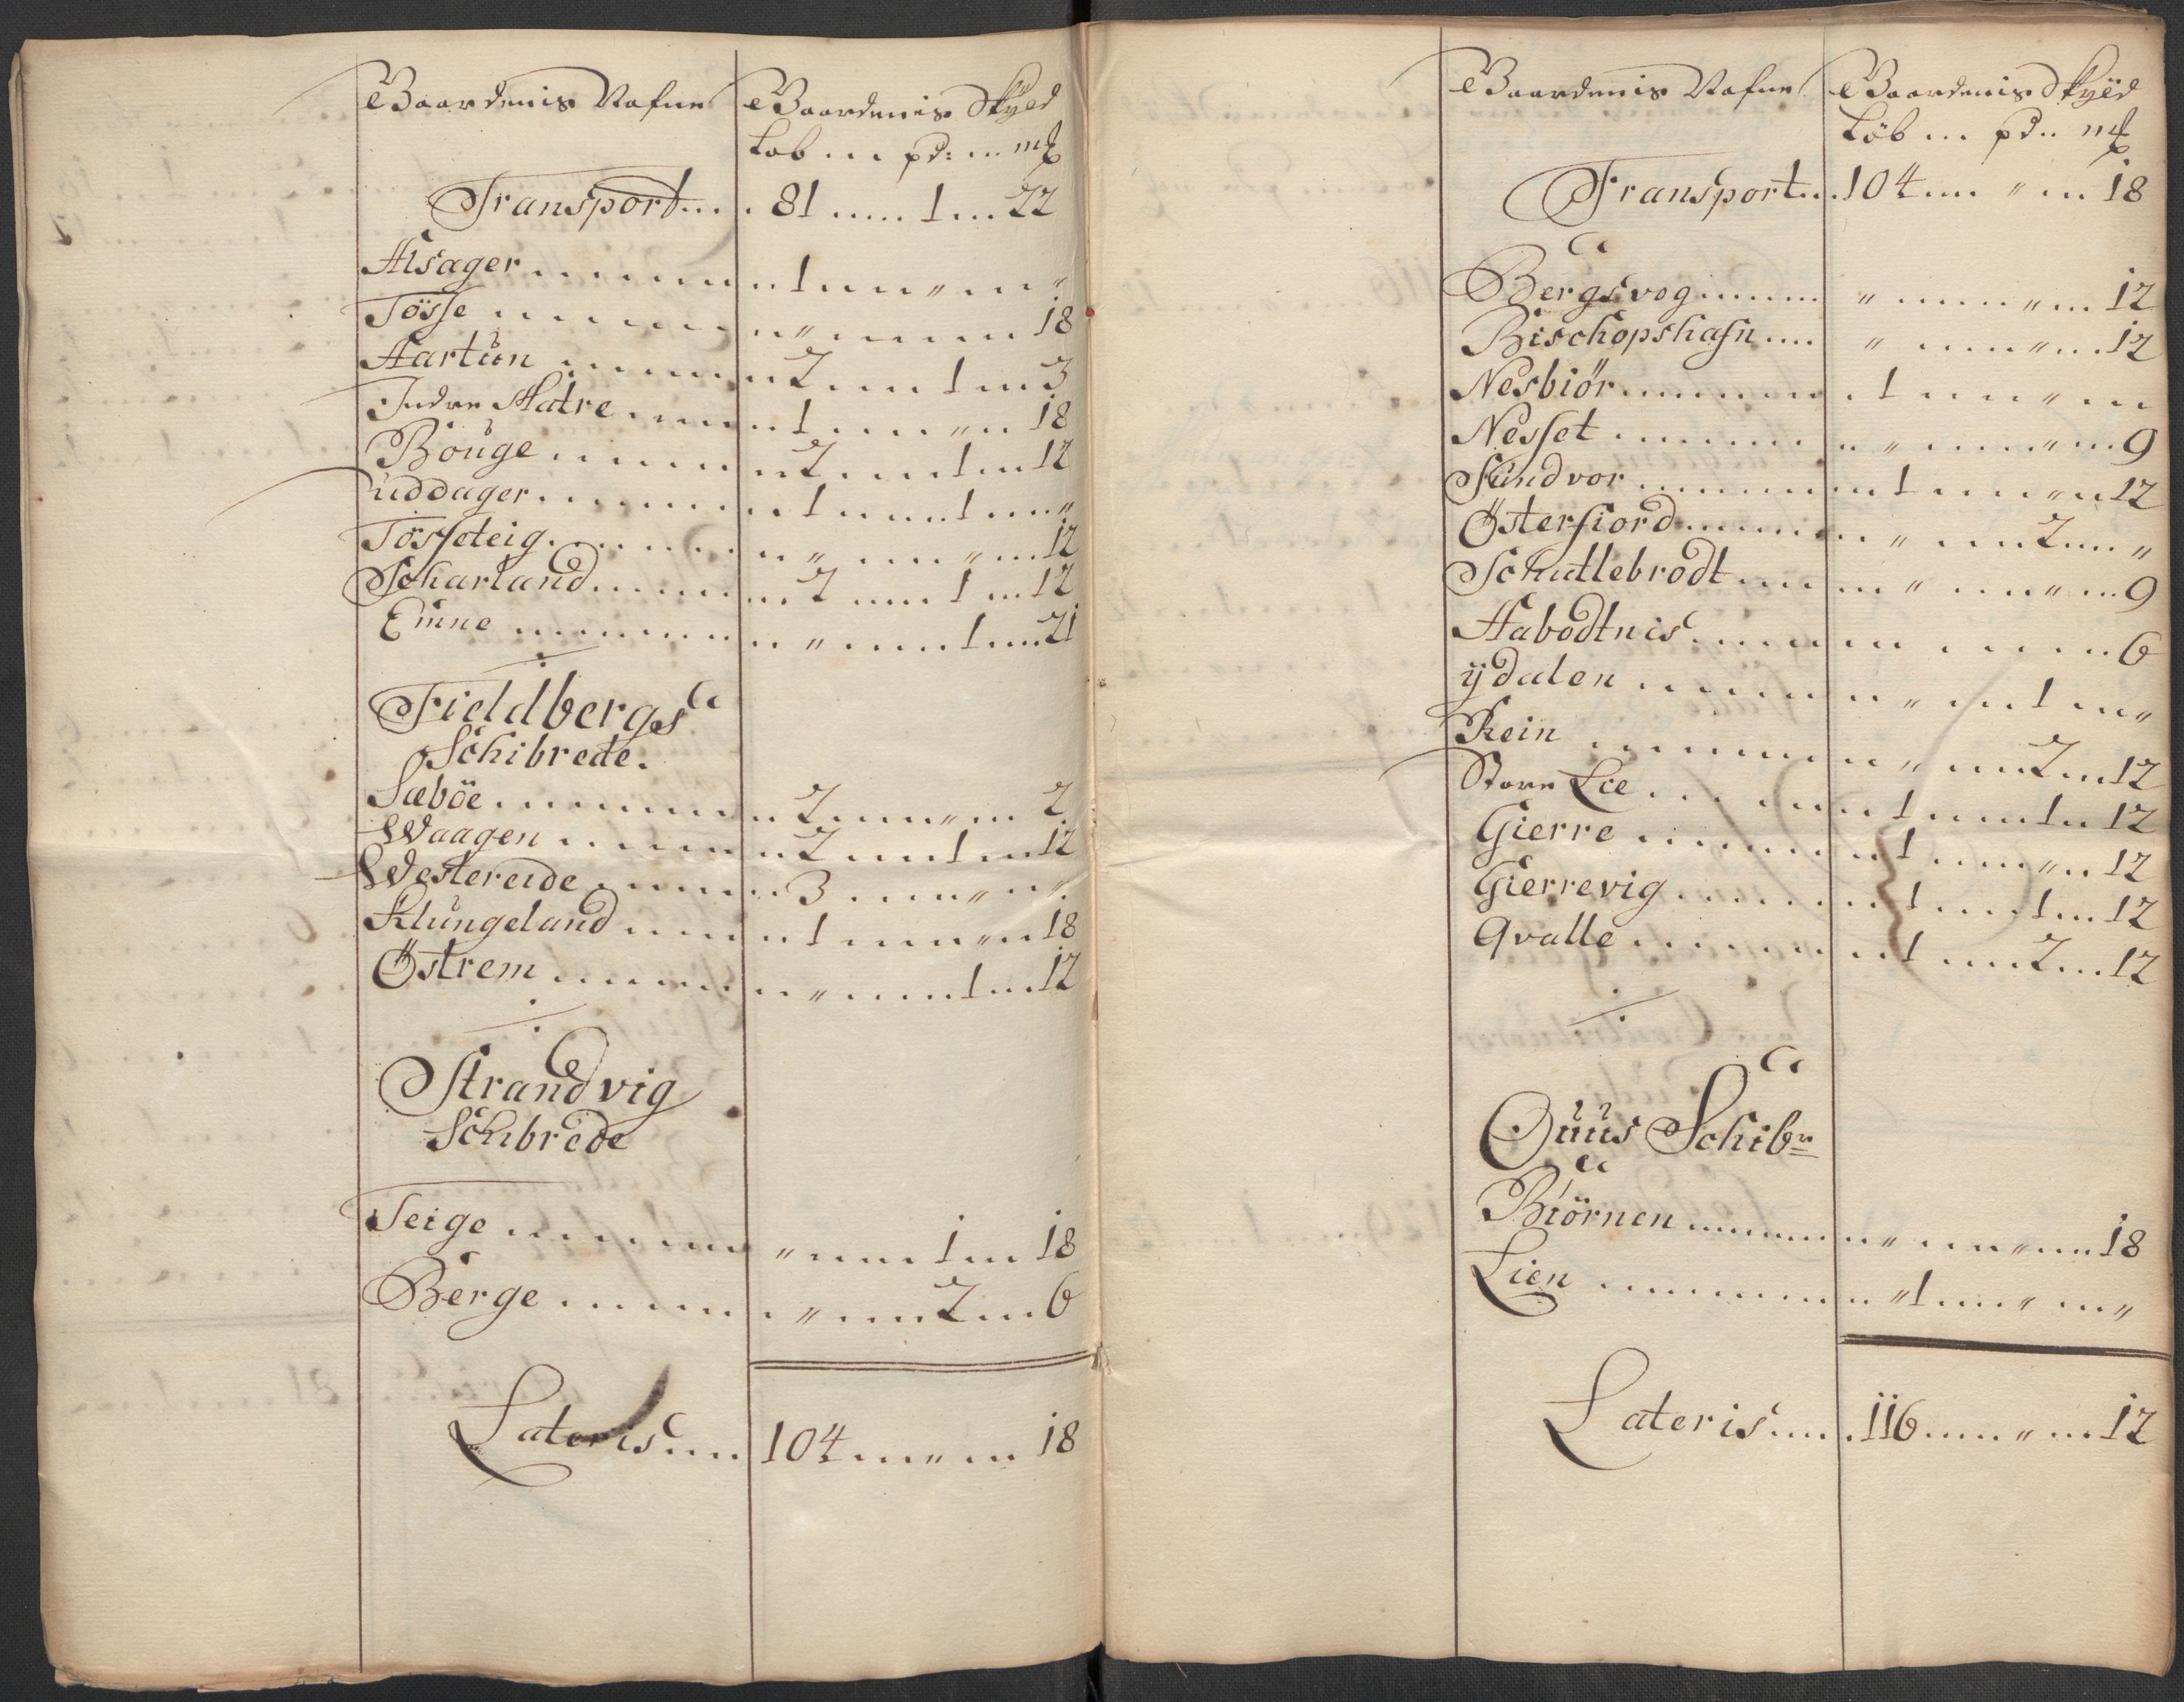 Gaardenis Nafne Gaardenis Skyld
Løb ... pd: ... m℔
Transport ... 81 ... 1 ... 22
Alsager ... 1 ... " ... "
Tösse ... " ... 18
Aartün ... 2 ... 1 ... 3
Indre Matre ... 1 ... " ... 18
Böuge ... 2 ... 1 ... 12
uddager ... 1 ... 1 ... "
Tösseteig ... " ... " ... 12
Scharland ... 2 ... 1 ... 12
Emne ... " ... 1 ... 21
Fieldbergs
Schibrede.
Sæböe ... 2 ... " ... 2
Waagen ... 2 ... 1 ... 12
Westereide ... 3 ... " ... "
Klüngeland ... 1 ... " ... 18
Östrem ... " ... 1 ... 12
Strandvig
Schibrede
Teige ... " ... 1 ... 18
Berge ... " ... 2 ... 6
Lateris ... 104 ... " ... 18
Gaardenis Nafne Gaardenis Skyld
Löb ... pd.. m℔
Transport ... 104 ... " ... 18
Bergsvog ... " ... " ... 12
Bischopshafn ... " ... " ... 12
Nesbiör ... 1 ... " ...
Nesset ... " ... " ... 9
Sündvor ... 1 ... " ... 12
Österfiord ... " ... 2 ... "
Schutlebrodt ... " ... " ... 9
Habodtnis ... 6
ÿdalen ... " ... 1 ... "
Rein ... " ... 2 ... 12
Store Lie ... 1 ... 1 ... 12
Gierre ... 1 ... " ... 12
Gierrevig ... 1 ... 1 ... 12
Qvalle ... 1 ... 2 ... 12
Öuüs Schibr
Biörnen ... " ... " ... 18
Lien ... " 1 ... " ... "
Lateris ... 116 ... " ... 12